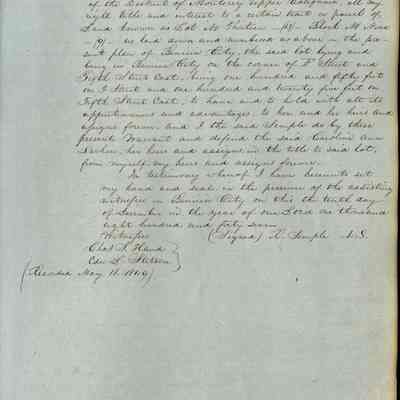 of the District of Monterey Upper California, all my
right title and interest to a certain tract or parcel of
Land known as Lot No Thirteen -13- Block No Nine
-9- as laid down and numbered as above in the pre
sent plan of Benicia City, the said lot lying and
being in Benicia City on the corner of I Street and
Fifth Street East, being one hundred and fifty feet
on I Street and one hundred and twenty five feet on
Fifth Street East, to have and to hold with all its
appurtenances and advantages, to her and her heirs and
assigns forever, and I the said Semple do by these
presents Warrant and defend the said Caroline Ann
her heirs and assigns in the title to said lot,
from myself my heirs and assigns forever.
In testimony whereof I have hereunto set
my hand and seal in the presence of the attesting
witnesses in Benicia City on this the tenth day
of December in the year of our Lord one thousand
eight hundred and forty seven
Witnesses (Signed) R. Semple L.S.
Chas. Hand
Edw.
(Recorded May 11. 1849)